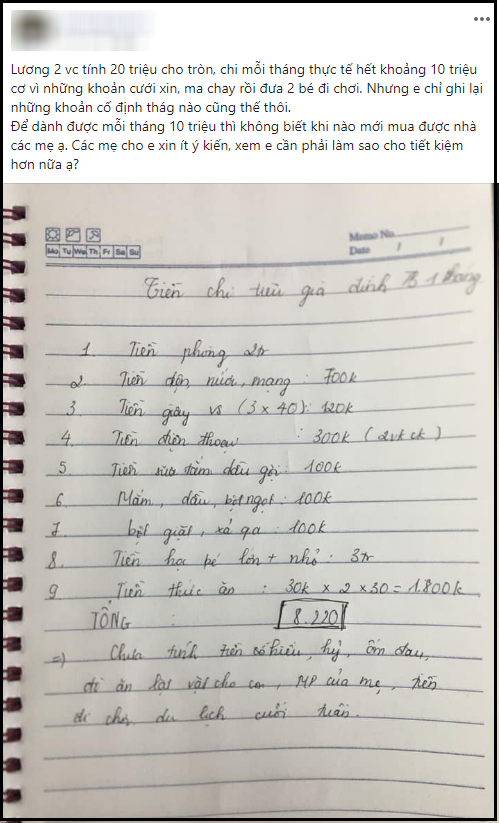 Lương 2 vc tính 20 triệu cho tròn, chi mỗi tháng thực tế hết khoảng 10 triệu
cơ vì những khoản cưới xin, ma chay rồi đưa 2 bé đi chơi. Nhưng e chỉ ghi lại
những khoản cố định thág nào cũng thế thôi.
Để dành được mỗi tháng 10 triệu thì không biết khi nào mới mua được nhà
các mẹ ạ. Các mẹ cho e xin ít ý kiến, xem e cần phải làm sao cho tiết kiệm
hơn nữa ạ?
Memo No.
Mo Tu We Th Fr Sa Su
Date / /
Tiền chi tiêu gia đình 1 tháng
1. Tiền phòng 2tr
2. Tiền điện, nước, mạng : 700k
3. Tiền giấy vs (3 x 40): 120k
4. Tiền điện thoại : 300k (2vk ck)
5. Tiền sữa tắm dầu gội: 100k
6. Mắm, dầu, bột ngọt: 100k
7. bột giặt, xả qa : 100k
8. Tiền học bé lớn + nhỏ: 3tr
9 Tiền thức ăn : 30k x 2 x 30 = 1.800k
TỔNG : 8.220
=> Chưa tính tiền số hiếu, hỷ, ốm đau,
đi ăn lặt vặt cho con, MP của mẹ, tiền
đi chơi, du lịch cuối tuần.